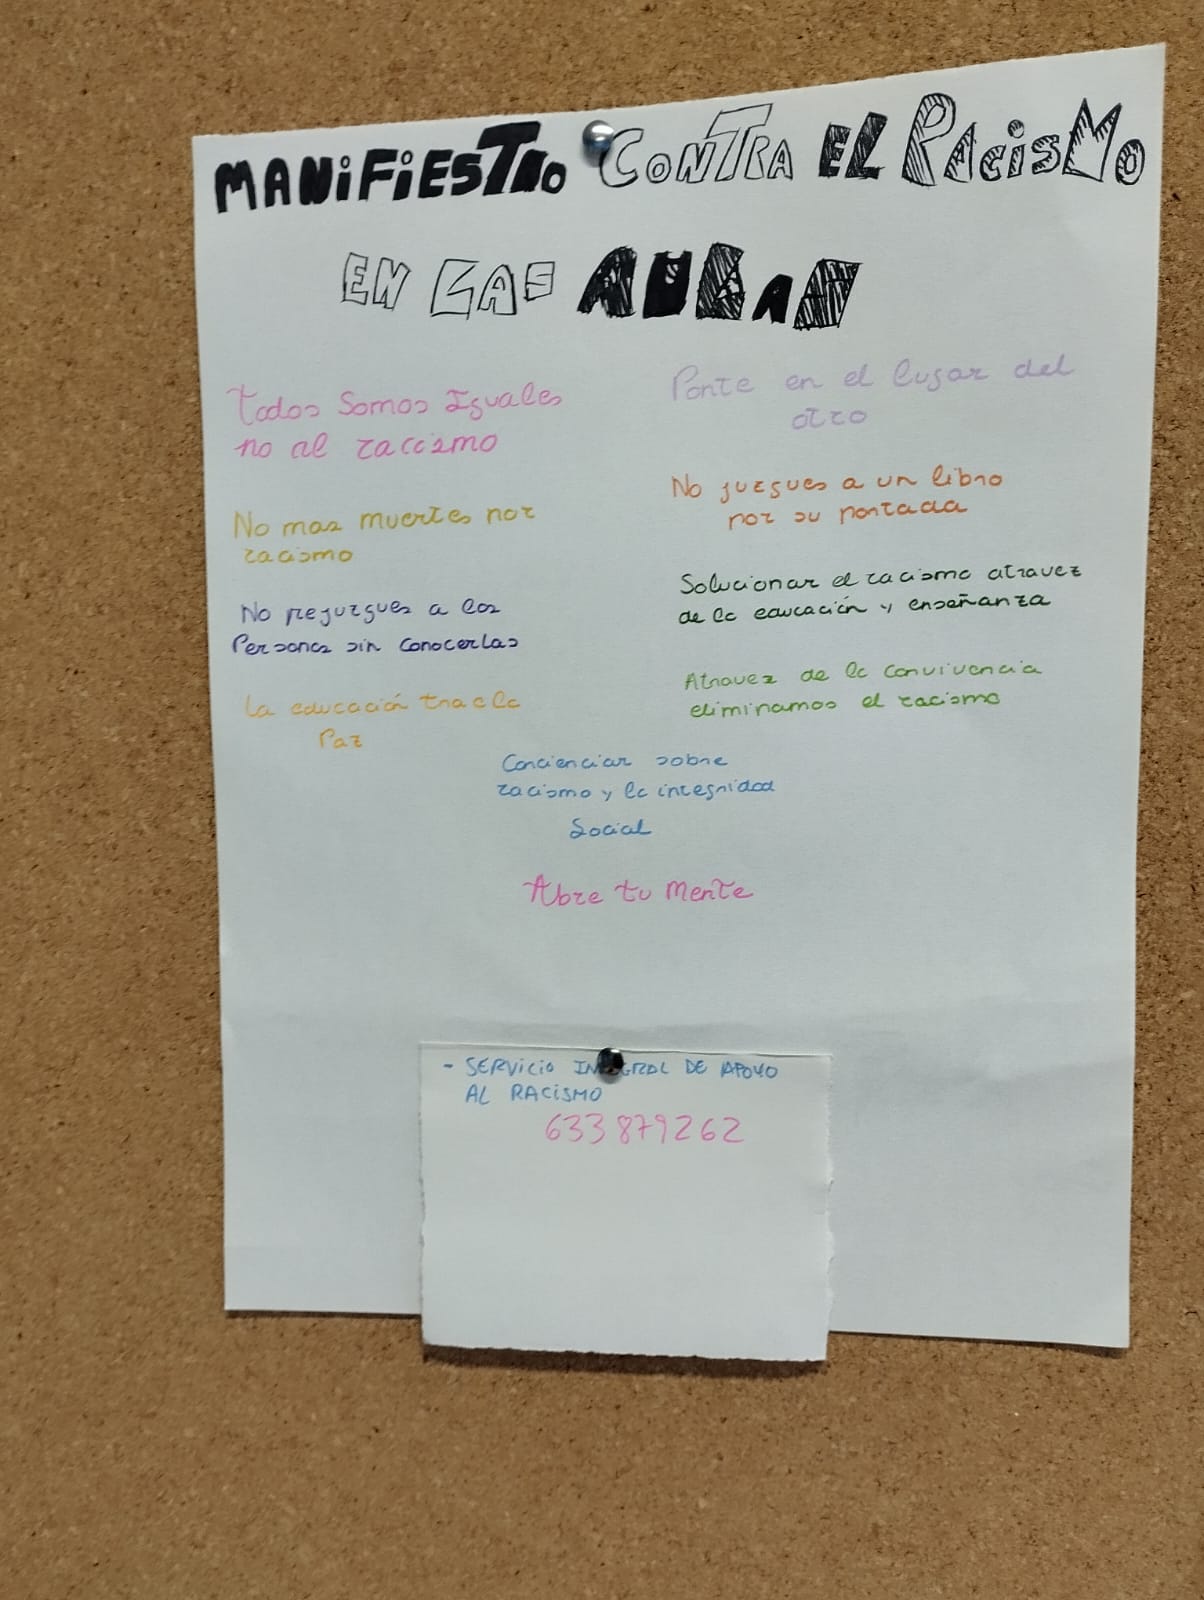 MANiFiESTRO CONTRA EL RACiSMO
EN LAS AULAS
Todos Somos Iguales
no al raccismo
No mas muertes por
racismo
No rejuzgues a las
Personas sin conocerlas
La educación trae la
Paz
Ponte en el lugar del
otro
No juzgues a un libro
por su portada
Solucionar el racismo atravez
de la educación y enseñanza
Atravez de la convivencia
eliminamos el racismo
Concienciar sobre
racismo y la integridad
Social
Abre tu mente
- SERViCiO INTEGRAL DE APOYO
AL RACiSMO
633 879262